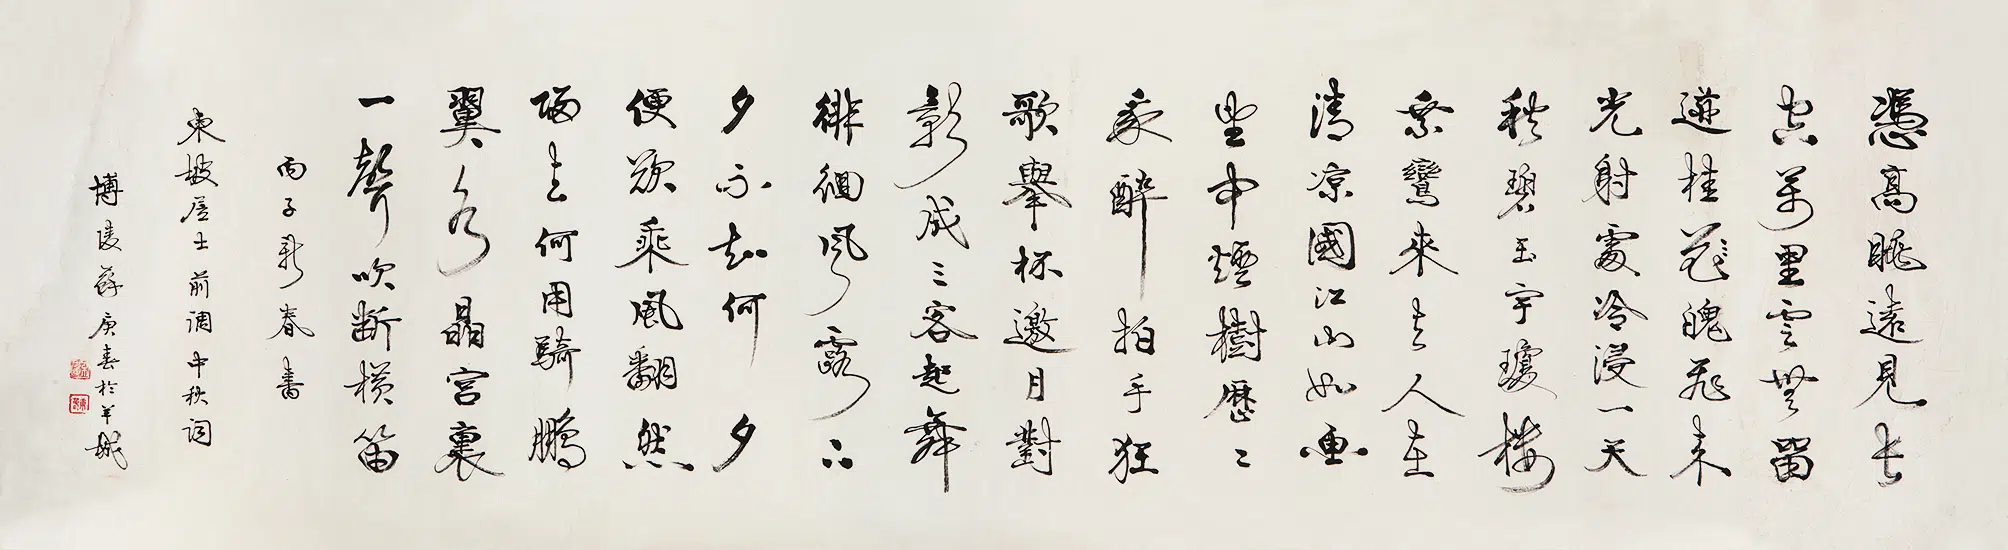 憑高眺遠見長
空萬里雲無留
迹桂花魄飛來
光射處冷浸一天
秋碧玉宇瓊樓
乘鸞來去人在
清涼國江山如畫
望中煙樹歷々
我醉拍手狂
歌舉杯邀月對
影成三客起舞
徘徊風露下
夕不知何夕
便欲乘風翻然
歸去何用騎鵬
翼水晶宮裏
一聲吹断橫笛
丙子新春書
東坡居士前調中秋詞
博陵蘇庚春於羊城